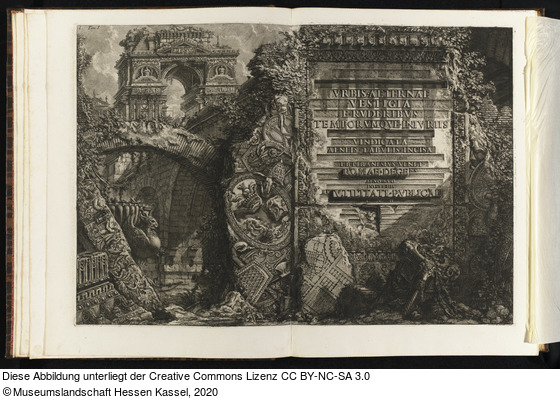 URBIS AETERNAE
VESTIGIA
E RUDERIBUS
TEMPORUMQUE INIURIIS
VINDICATA
AENEIS TABULIS INCISA
ROMAE DEGENS
UTILITATI PUBLICAE
Diese Abbildung unterliegt der Creative Commons Lizenz CC BY-NC-SA 3.0
© Museumslandschaft Hessen Kassel, 2020